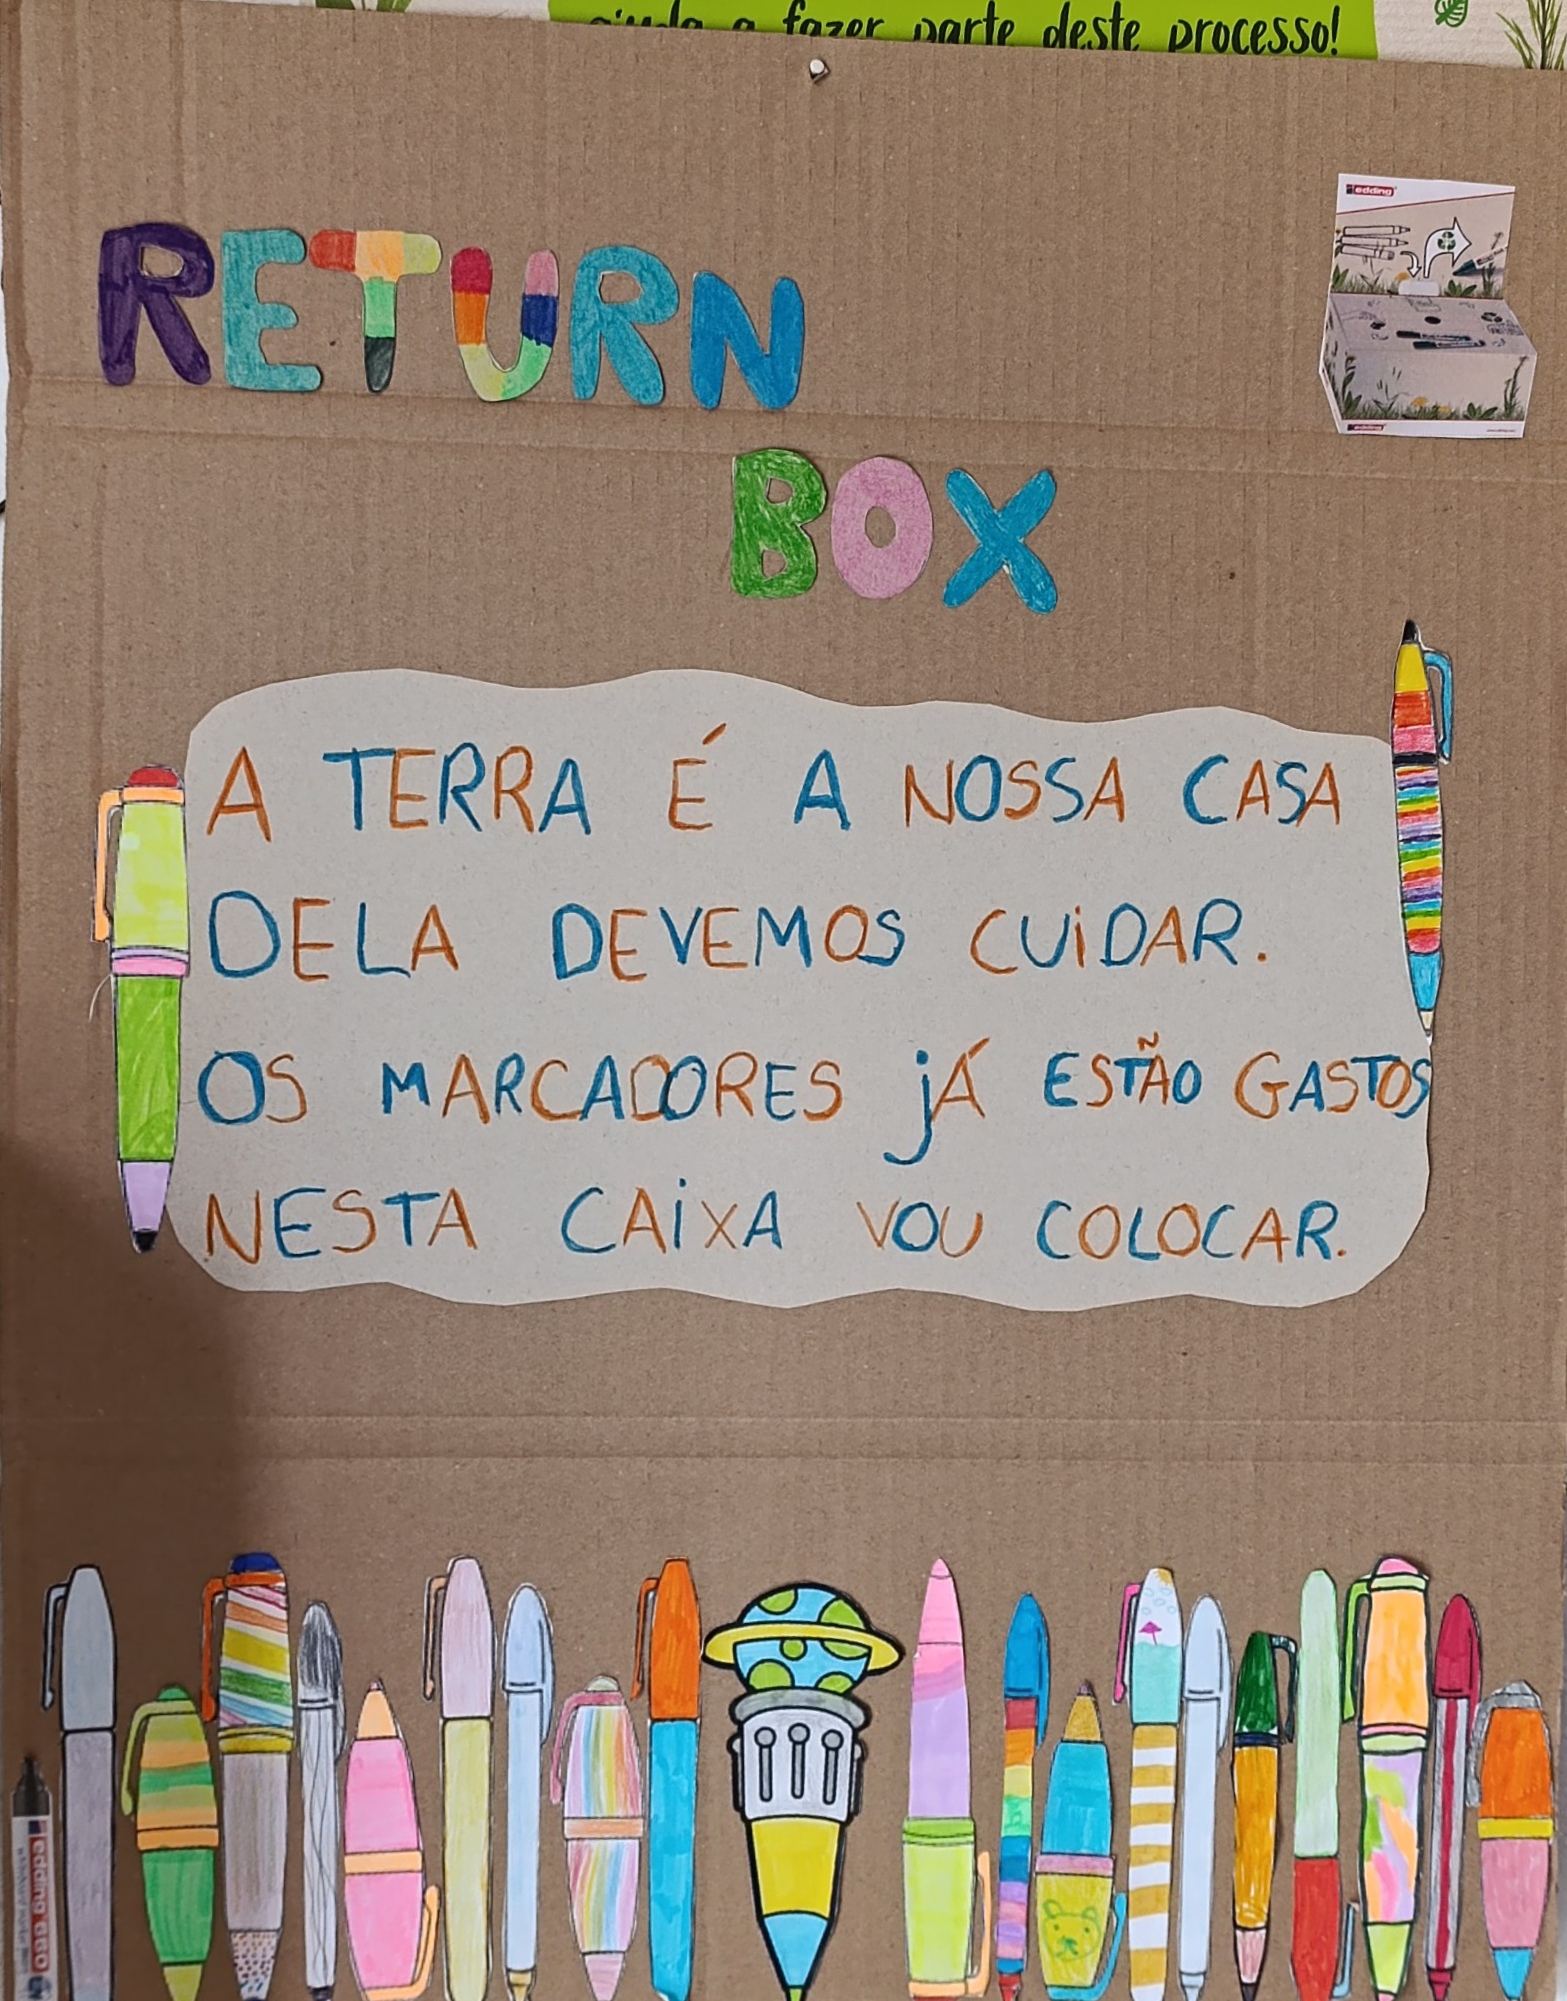 a fazer parte deste processo!
edding
RETURN
BOX
edding
A TERRA É A NOSSA CASA
DELA DEVEMOS CUiDAR.
OS MARCADORES jÁ ESTÃO GASTOS
NESTA CAiXA VOU COLOCAR.
edding 660